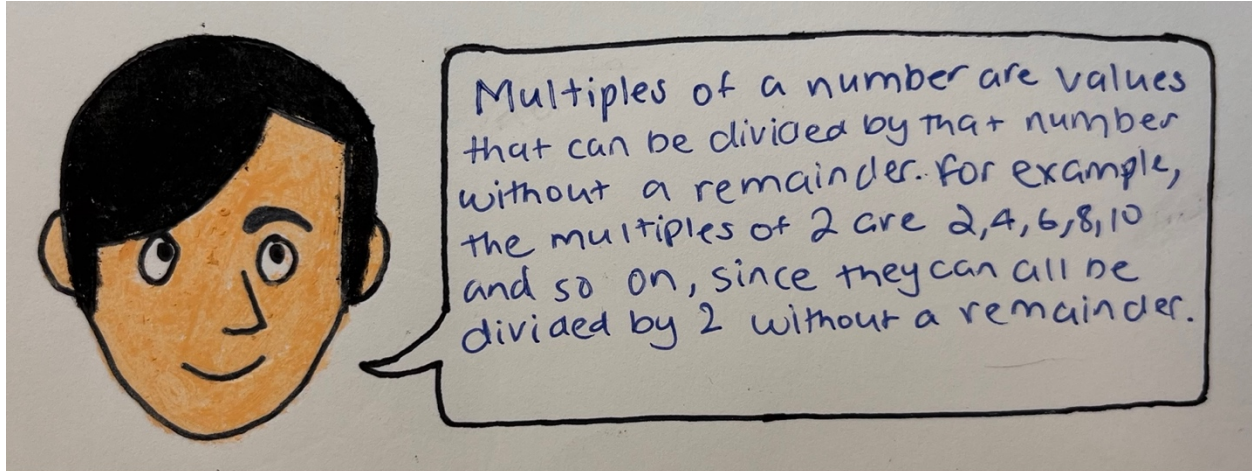 Multiples of a number are values
that can be divided by that number
without a remainder. For example,
the multiples of 2 are 2,4,6,8,10
and so on, since they can all be
divided by 2 without a remainder.